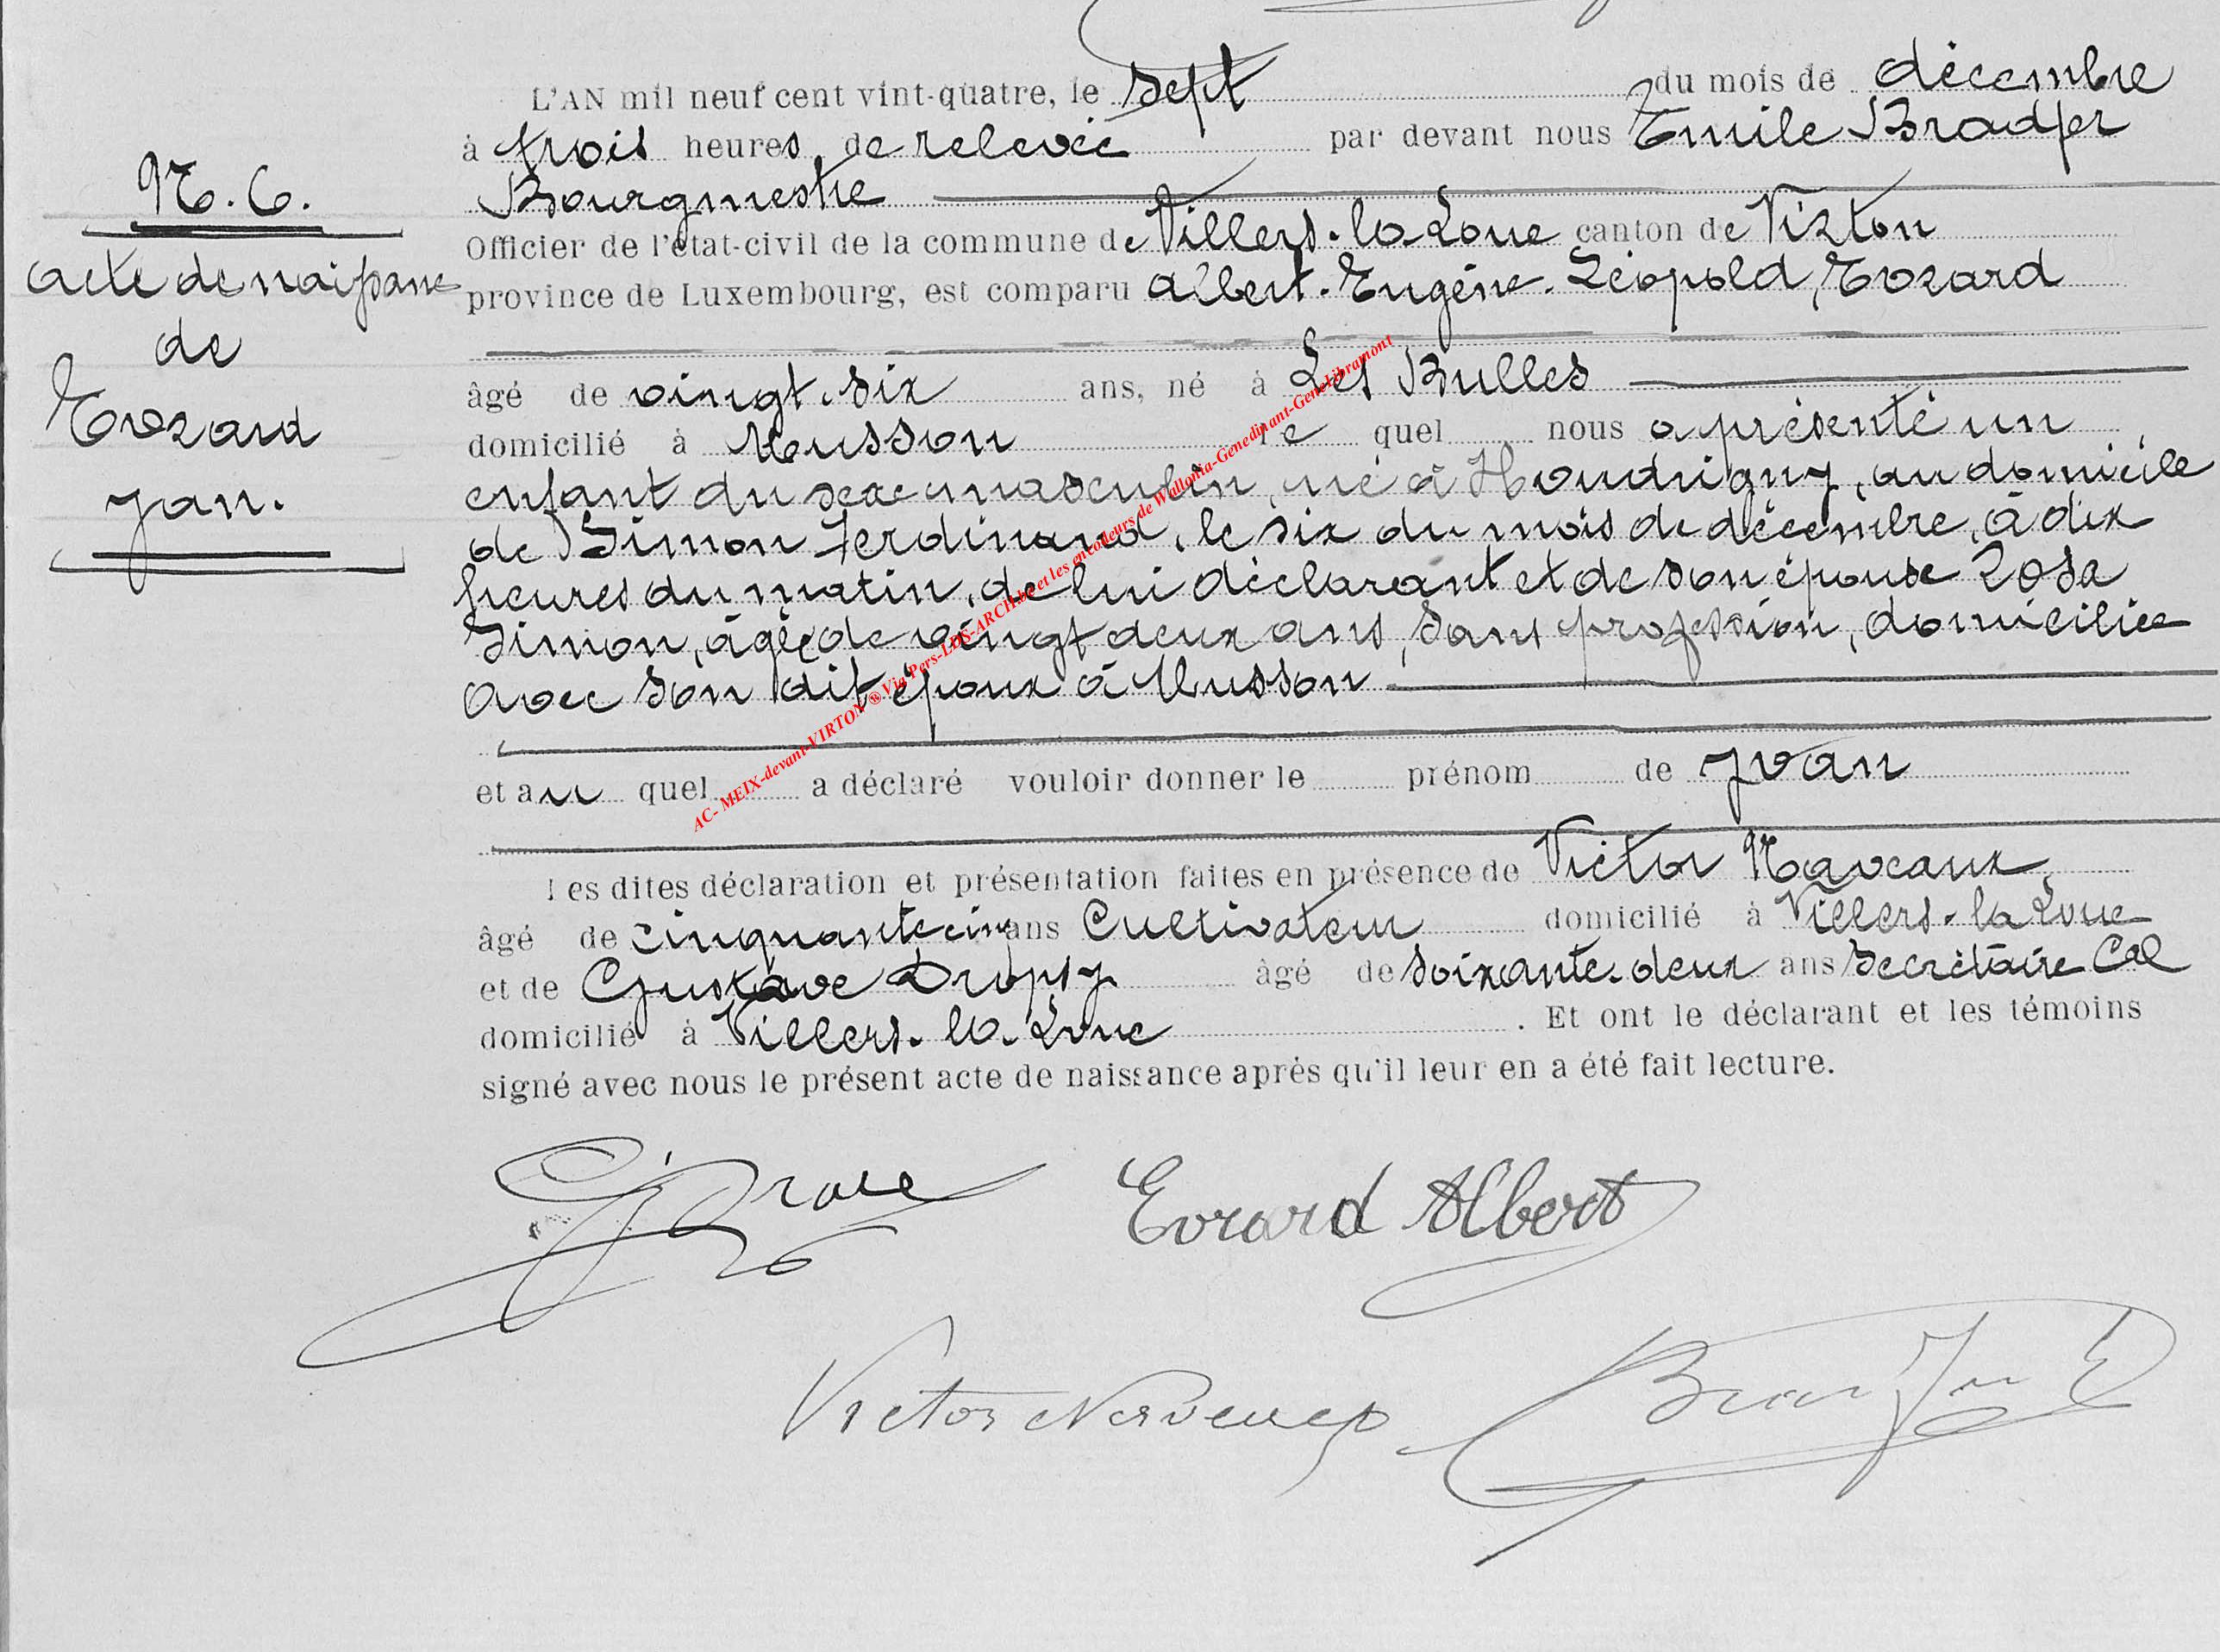 L'AN mil neuf cent vint-quatre, le sept du mois de décembre
à trois heures de relevée par devant nous Emile Bradfer
Bourgmestre
Officier de l'état-civil de la commune de Villers-la-Loue canton de Virton
province de Luxembourg, est comparu Albert-Eugène-Léopold, Evrard
âgé de vingt-six ans, né à Les Bulles
domicilié à Musson le quel nous a présenté un
enfant du sexe masculin, né à Houdrigny, au domicile
de Simon Ferdinand, le six du mois de décembre, à dix
heures du matin, de lui déclarant et de son épouse Rosa
Simon, âgée de vingt deux ans, sans profession, domiciliée
avec son dit époux à Musson
et au quel a déclaré vouloir donner le prénom de Yvan
Les dites déclaration et présentation faites en présence de Victor Naveaux
âgé de cinquante cinq ans Cultivateur domicilié à Villers-la-Loue
et de Gustave Dropsy âgé de soixante-deux ans Secrétaire Cal
domicilié à Villers-la-Loue. Et ont le déclarant et les témoins
signé avec nous le présent acte de naissance après qu'il leur en a été fait lecture.
N. 6.
acte de naissance
de
Evrard
Yvan.
AC- MEIX-devant-VIRTON ® Via Pers-LDS-ARCH.be et les encodeurs de Wallonia-Genedinant-GeneLibramont
Evrard Albert
Victor